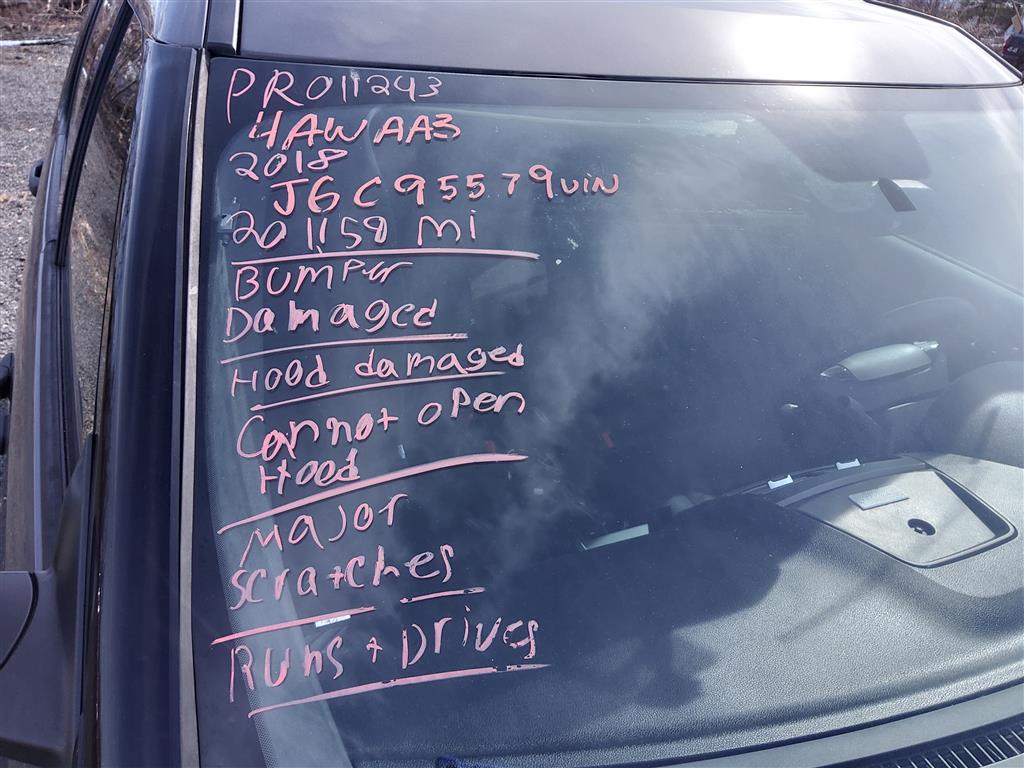 PR011243
4AWAA3
2018
JGC95579 VIN
201,158 MI
BUMPer
Damaged
Hood damaged
Cannot open
Hood
Major
scratches
Runs + Drives